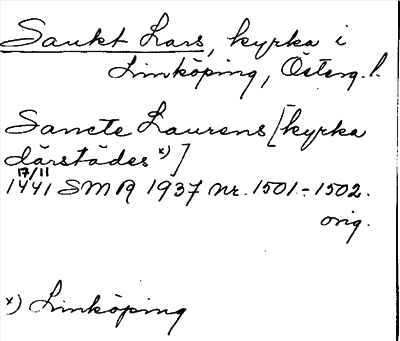 Sankt Lars, kyrka i
Linköping, Österg. l.
Sancte Laurens [kyrka
därstädes x)]
17/11
1441 SMR 1937 nr. 1501.-1502.
orig.
x) Linköping